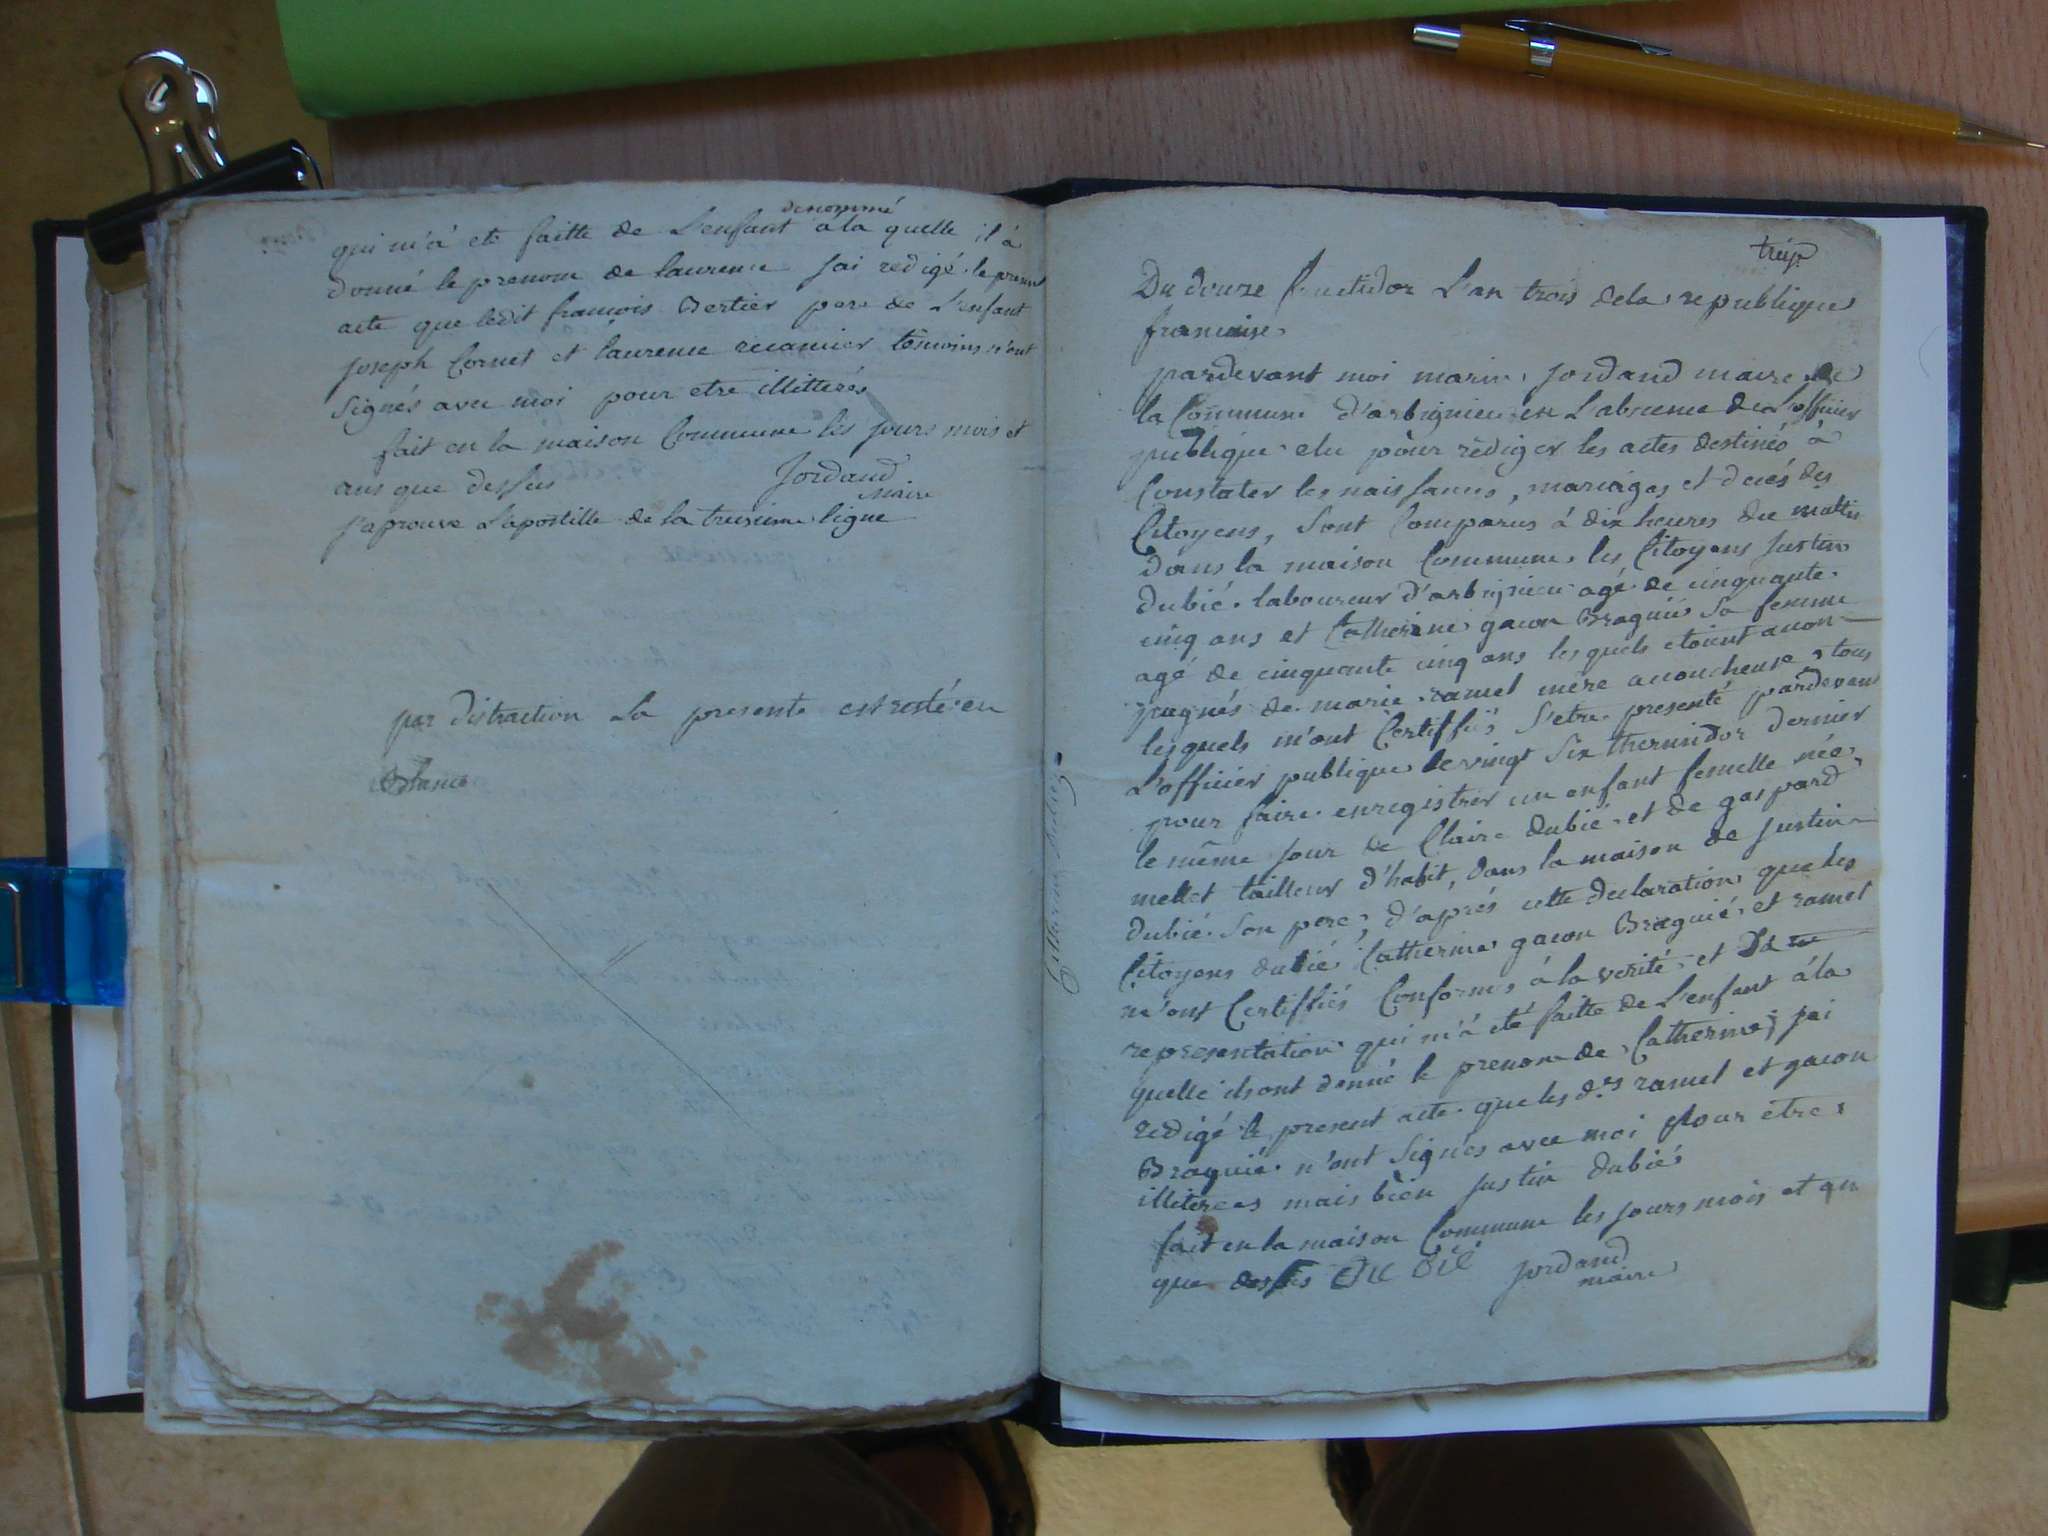 denommé
qui m'a eté faitte de L'enfant á la quelle il à
donné le prenom de laurence Jai redigé le present
acte que ledit francois Bertier pere de L'enfant
joseph Cornet et laurence recamier têmoins n'ont
Signés avec moi pour etre illitterés
fait en la maison Commune les jours mois et
ans que dessus Jordand
maire
J'aprouve L'apostille de la treisieme ligne
par distraction La presente est restée en
Blanc
treize
Du douze fructidor L'an trois de la republique
francaise
pardevant moi marin Jordand maire de
la Commune d'arbignieu en L'absence de L'officier
publique elu pour rediger les actes destinés à
Constater les naissances, mariages et decés des
Citoyens, Sont Comparus á dix heures du mattin
dans la maison Commune les Citoyens Justin
dubié laboureur d'arbignieu agé de cinquante
cinq ans et Catherine gacon Braquié Sa femme
agé de cinquante cinq ans les quels etoient acom-
pagnés de marie ramel mére acoucheuse, tous
lesquels m'ont Certiffiés S'etre presenté pardevant
L'officier publique le vingt Six thermidor dernier
pour faire enregistrer un enfant femelle née
le même jour de Claire dubié et de gaspard
mellet tailleur d'habit, dans la maison de Justin
dubié Son pere, d'aprés cette declaration que les
Citoyens dubié Catherine gacon Braquié et ramel
m'ont Certiffiés Conforme á la verité et La
representation qui m'a eté faitte de L'enfant á la
quelle ils ont donné le prenom de Catherine; jai
redigé le present acte que les d.es ramel et gacon
Braquié n'ont Signés avec moi Pour etre
illiterees mais bien Justin dubié
fait en la maison Commune les jours mois et an
que dessus Du bié Jordand
maire